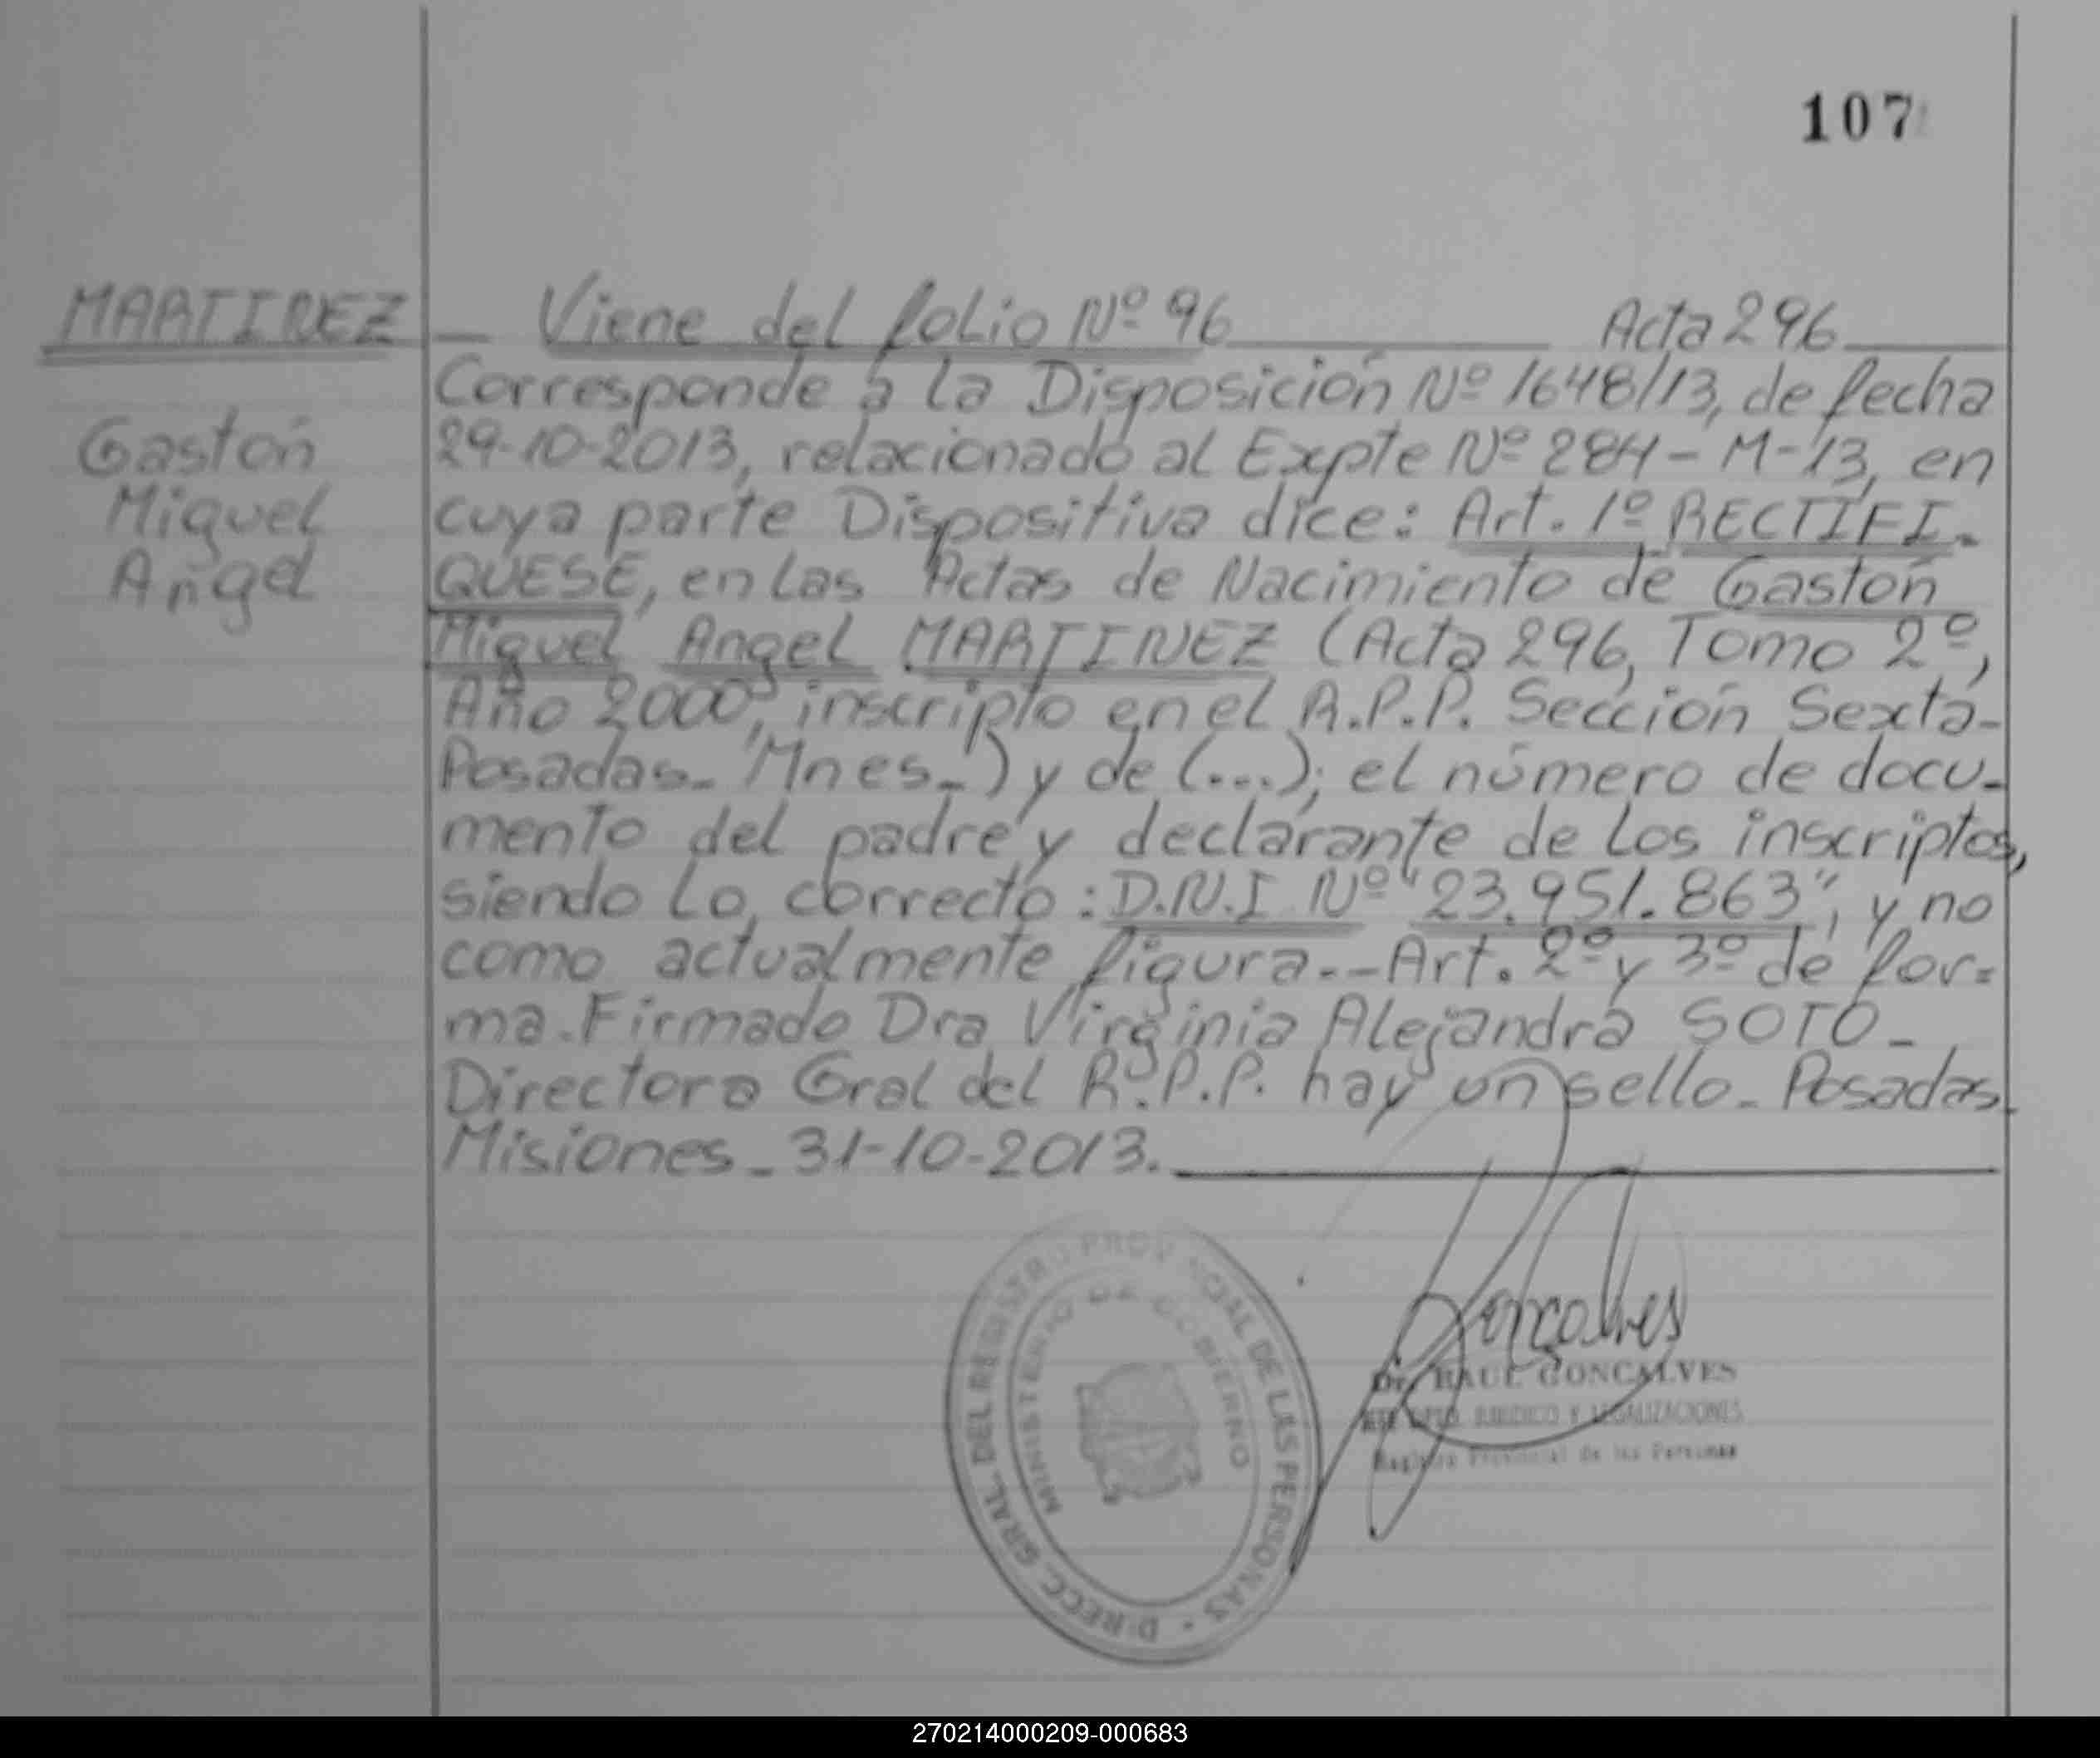 107
MARTINEZ
Gastón
Miguel
Angel
Viene del folio Nº 96 Acta 296
Corresponde a la Disposición Nº 1648/13, de fecha
29-10-2013, relacionado al Expte Nº 284-M-13, en
cuya parte Dispositiva dice: Art. 1º RECTIFI-
QUESE, en las Actas de Nacimiento de Gastón
Miguel Angel MARTINEZ (Acta 296, Tomo 2º,
Año 2000, inscripto en el R.P.P. Sección Sexta-
Posadas- Mnes-) y de (...); el número de docu-
mento del padre y declarante de los inscriptos,
siendo lo correcto: D.N.I Nº "23.951.863", y no
como actualmente figura.- Art. 2º y 3º de for=
ma. Firmado Dra Virginia Alejandra SOTO-
Directora Gral del R.P.P. hay un sello- Posadas-
Misiones- 31-10-2013.
DIRECC. GRAL DEL REGISTRO PROVINCIAL DE LAS PERSONAS
MINISTERIO DE GOBIERNO
Goncalves
Dr. RAUL GONCALVES
DPTO. JURIDICO Y LEGALIZACIONES
Registro Provincial de las Personas
270214000209-000683